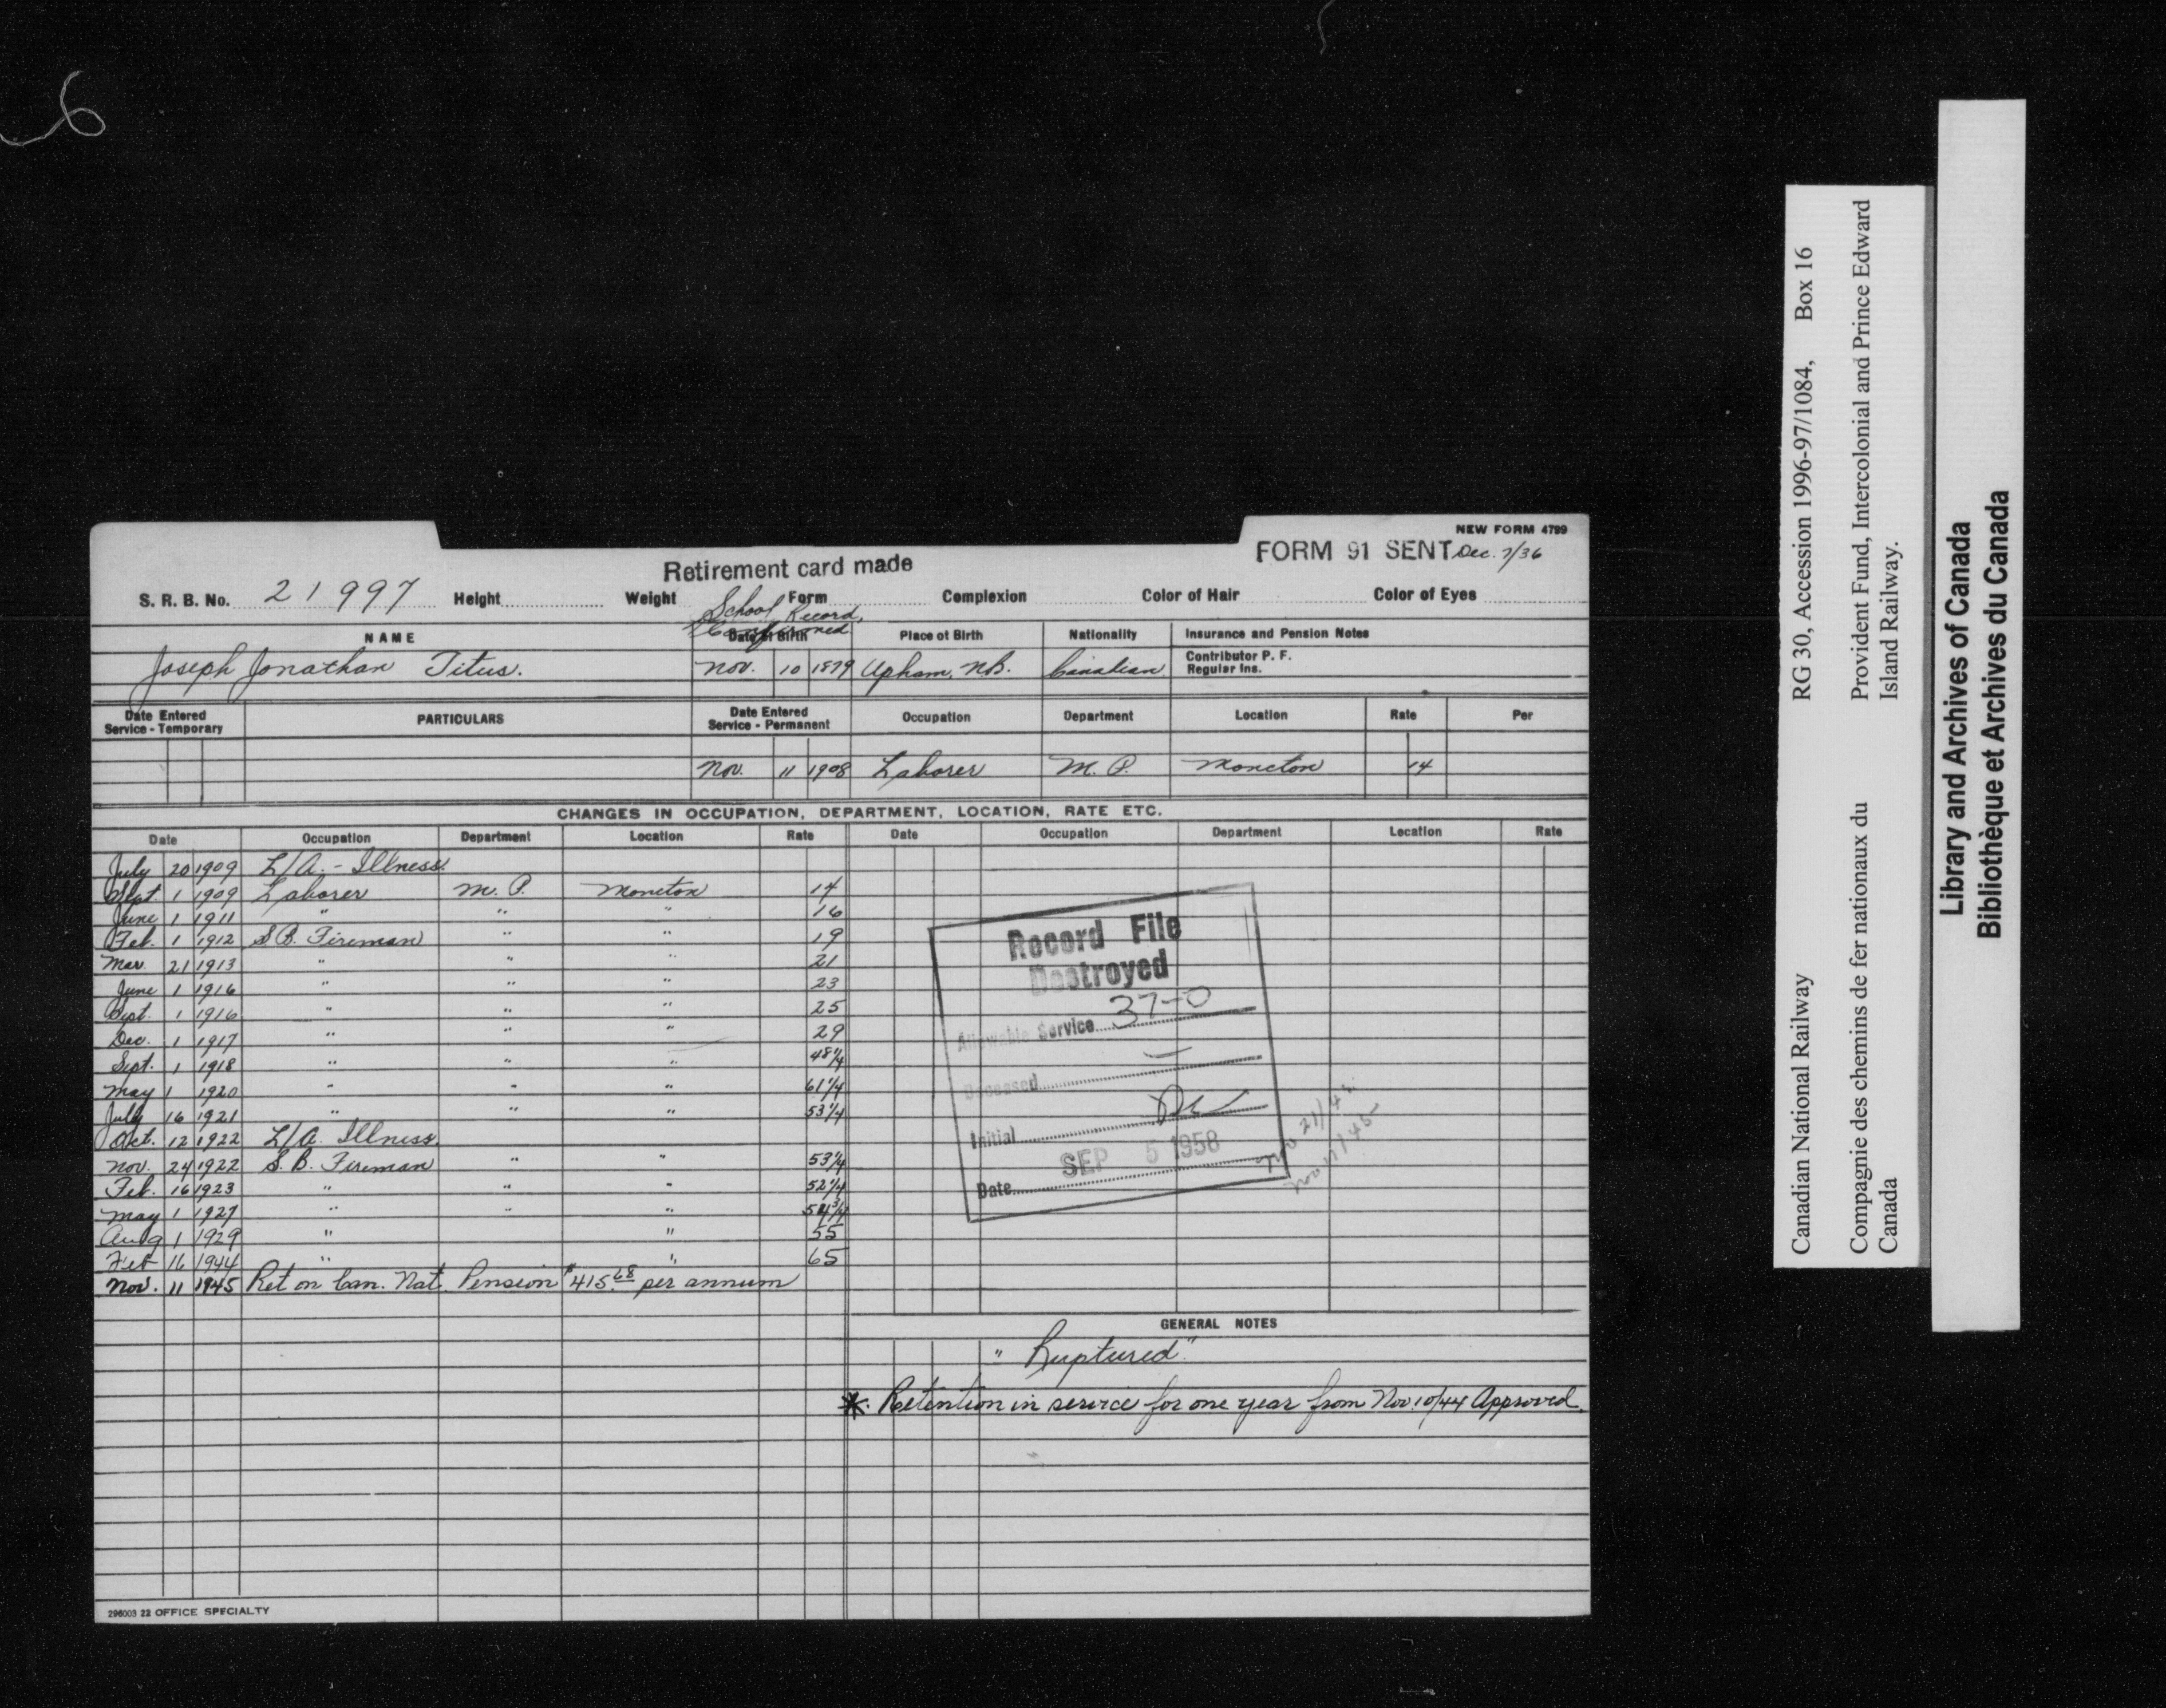 NEW FORM 4799
FORM 91 SENT Dec. 7/36
Retirement card made
S. R. B. No. 21997 Height Weight Form Complexion Color of Hair Color of Eyes
School Record
Confirmed
NAME Date of Birth Place of Birth Nationality Insurance and Pension Notes
Contributor P. F.
Regular Ins.
Joseph Jonathan Titus. Nov. 10 1879 Upham, N.B. Canadian
Date Entered Service - Temporary PARTICULARS Date Entered Service - Permanent Occupation Department Location Rate Per
Nov. 11 1908 Laborer M. P. Moncton 14
CHANGES IN OCCUPATION, DEPARTMENT, LOCATION, RATE ETC.
Date Occupation Department Location Rate Date Occupation Department Location Rate
July 20 1909 L/A. - Illness.
Sept. 1 1909 Laborer M. P. Moncton 14
June 1 1911 " " " 16
Feb. 1 1912 S.B. Fireman " " 19
Mar. 21 1913 " " " 21
June 1 1916 " " " 23
Sept. 1 1916 " " " 25
Dec. 1 1917 " " " 29
Sept. 1 1918 " " " 48 1/4
May 1 1920 " " " 61 1/4
July 16 1921 " " " 53 1/4
Oct. 12 1922 L/A. Illness.
Nov. 24 1922 S. B. Fireman " " 53 1/4
Feb. 16 1923 " " " 52 1/4
May 1 1927 " " " 54 3/4
Aug 1 1929 " " 55
Feb 16 1944 " " 65
Nov. 11 1945 Ret on Can. Nat. Pension $415.68 per annum
Record File
Destroyed
Allowable Service 37-0
Deceased —
Initial
SEP 5 1958
Date
Nov 11/45
GENERAL NOTES
"Ruptured"
*. Retention in service for one year from Nov. 10/44 Approved.
296003 22 OFFICE SPECIALTY
Canadian National Railway RG 30, Accession 1996-97/1084, Box 16
Compagnie des chemins de fer nationaux du Canada
Provident Fund, Intercolonial and Prince Edward Island Railway.
Library and Archives of Canada
Bibliothèque et Archives du Canada